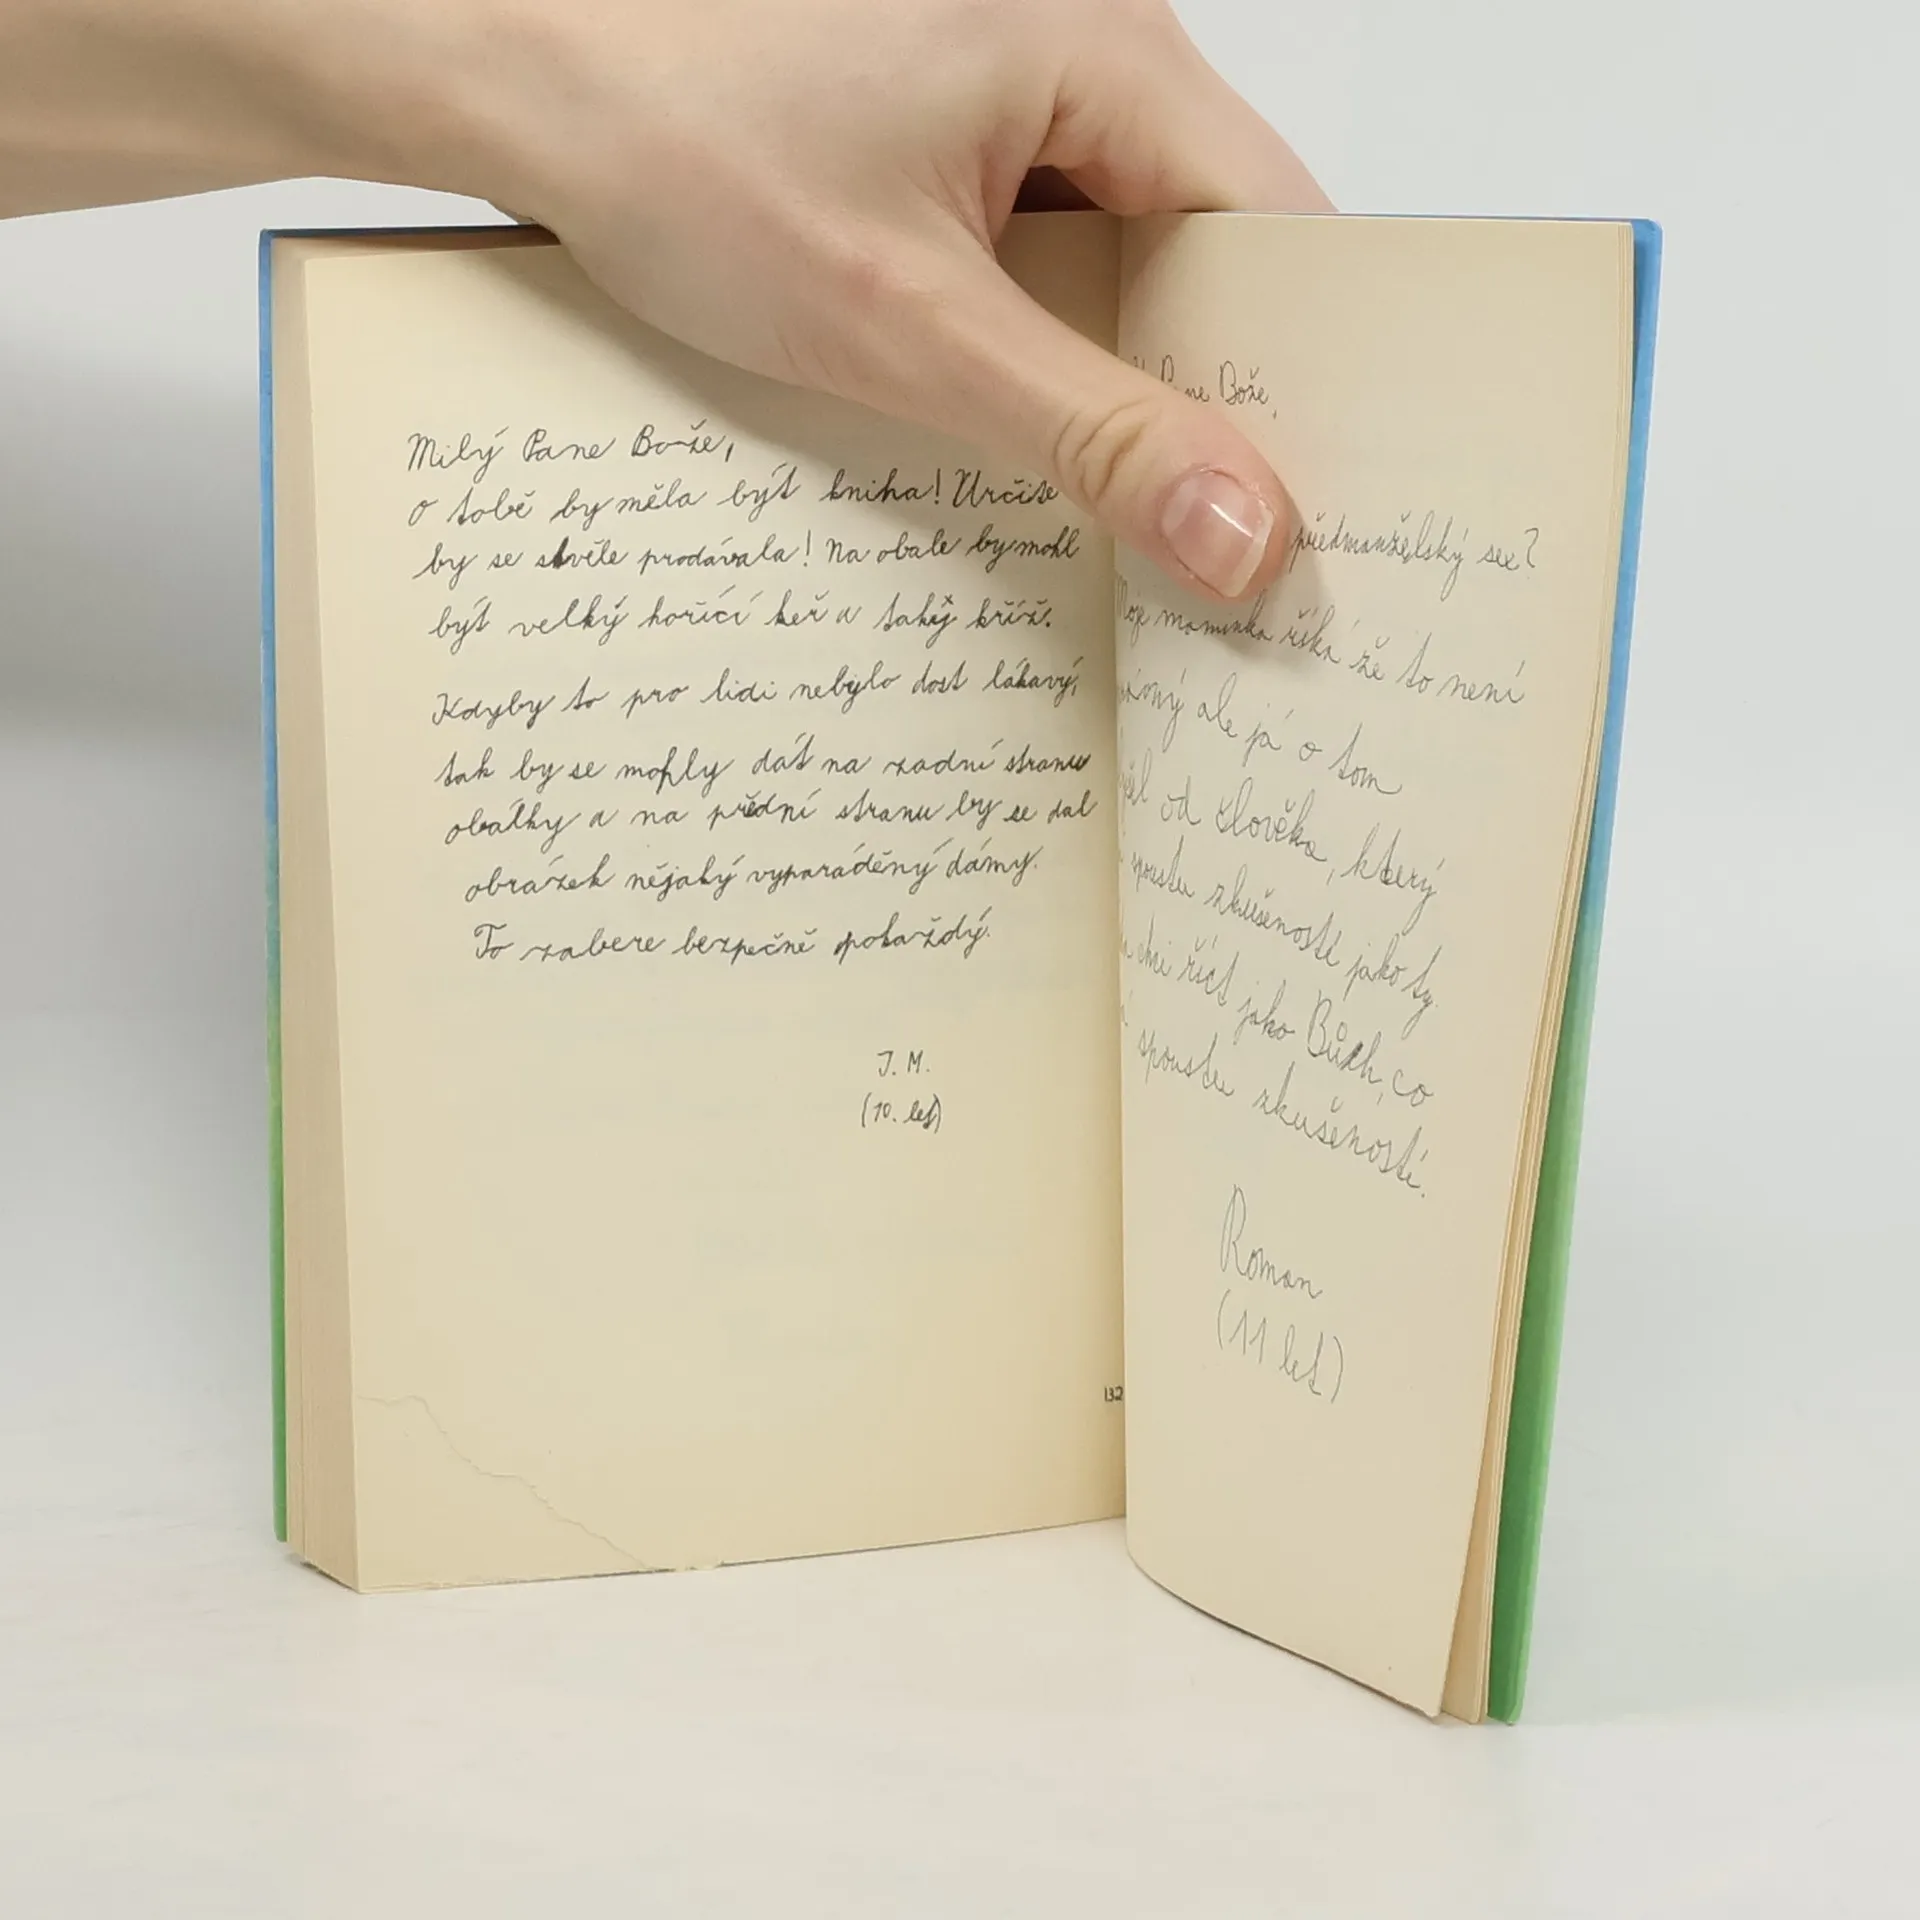 Milý Pane Bože,
o tobě by měla být kniha! Určitě
by se skvěle prodávala! Na obale by mohl
být velký hořící keř a taky kříž.
Kdyby to pro lidi nebylo dost lákavý,
tak by se mohly dát na zadní stranu
obálky a na přední stranu by se dal
obrázek nějaký vyparáděný dámy.
To zabere bezpečně pokaždý.
J. M.
(10. let)
132
Bože,
předmanželský sex?
Moje maminka říká že to není
ale já o tom
od člověka, který
spoustu zkušeností jako ty.
chci říct jako Bůh, co
spoustu zkušeností.
Roman
(11 let)